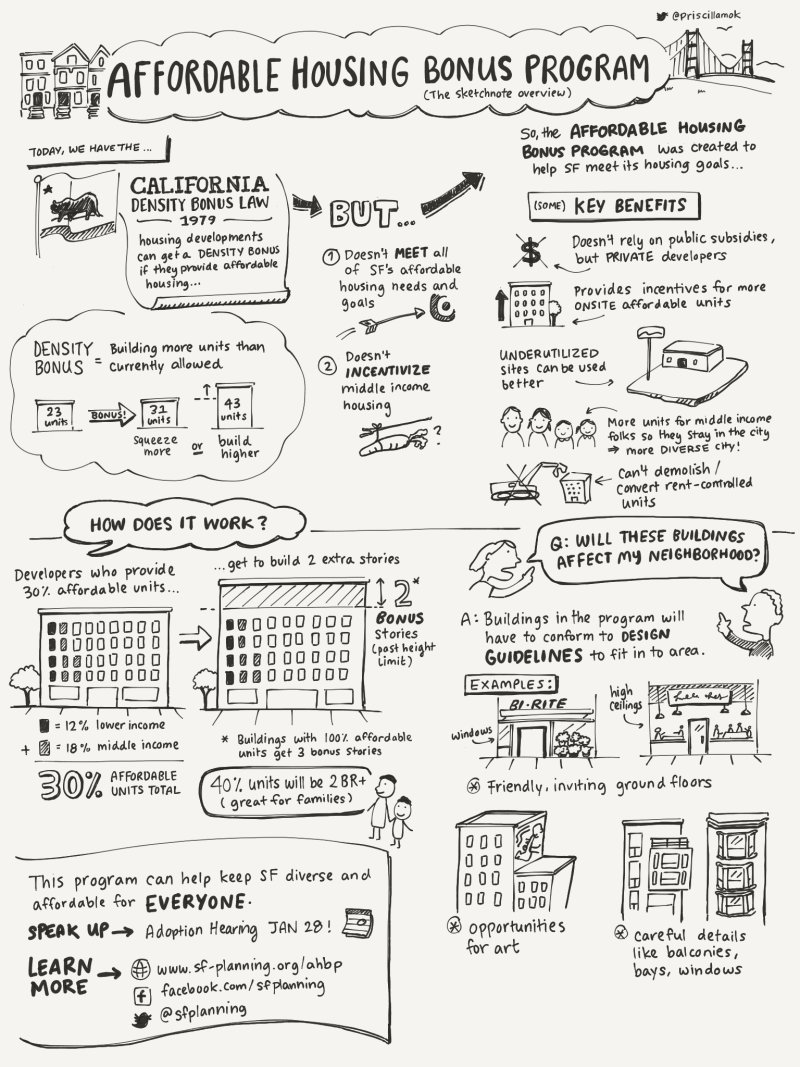 @priscillamok
AFFORDABLE HOUSING BONUS PROGRAM
(The sketchnote overview)
TODAY, WE HAVE THE...
CALIFORNIA
DENSITY BONUS LAW
1979
housing developments
can get a DENSITY BONUS
if they provide affordable
housing...
DENSITY
BONUS
= Building more units than
currently allowed
23
units
BONUS!
31
units
squeeze
more
or
43
units
build
higher
BUT...
1 Doesn't MEET all
of SF's affordable
housing needs and
goals
2 Doesn't
INCENTIVIZE
middle income
housing
?
So, the AFFORDABLE HOUSING
BONUS PROGRAM was created to
help SF meet its housing goals...
(SOME) KEY BENEFITS
$
Doesn't rely on public subsidies,
but PRIVATE developers
Provides incentives for more
ONSITE affordable units
UNDERUTILIZED
sites can be used
better
More units for middle income
folks so they stay in the city
⇒ more DIVERSE city!
Can't demolish /
convert rent-controlled
units
HOW DOES IT WORK?
Developers who provide
30% affordable units...
...get to build 2 extra stories
2*
BONUS
stories
(past height
limit)
= 12% lower income
+ = 18% middle income
30% AFFORDABLE
UNITS TOTAL
* Buildings with 100% affordable
units get 3 bonus stories
40% units will be 2BR+
(great for families)
Q: WILL THESE BUILDINGS
AFFECT MY NEIGHBORHOOD?
A: Buildings in the program will
have to conform to DESIGN
GUIDELINES to fit in to area.
EXAMPLES:
windows
BI-RITE
high
ceilings
* Friendly, inviting ground floors
* opportunities
for art
* careful details
like balconies,
bays, windows
This program can help keep SF diverse and
affordable for EVERYONE.
SPEAK UP → Adoption Hearing JAN 28!
LEARN
MORE →
www.sf-planning.org/ahbp
facebook.com/sfplanning
@sfplanning